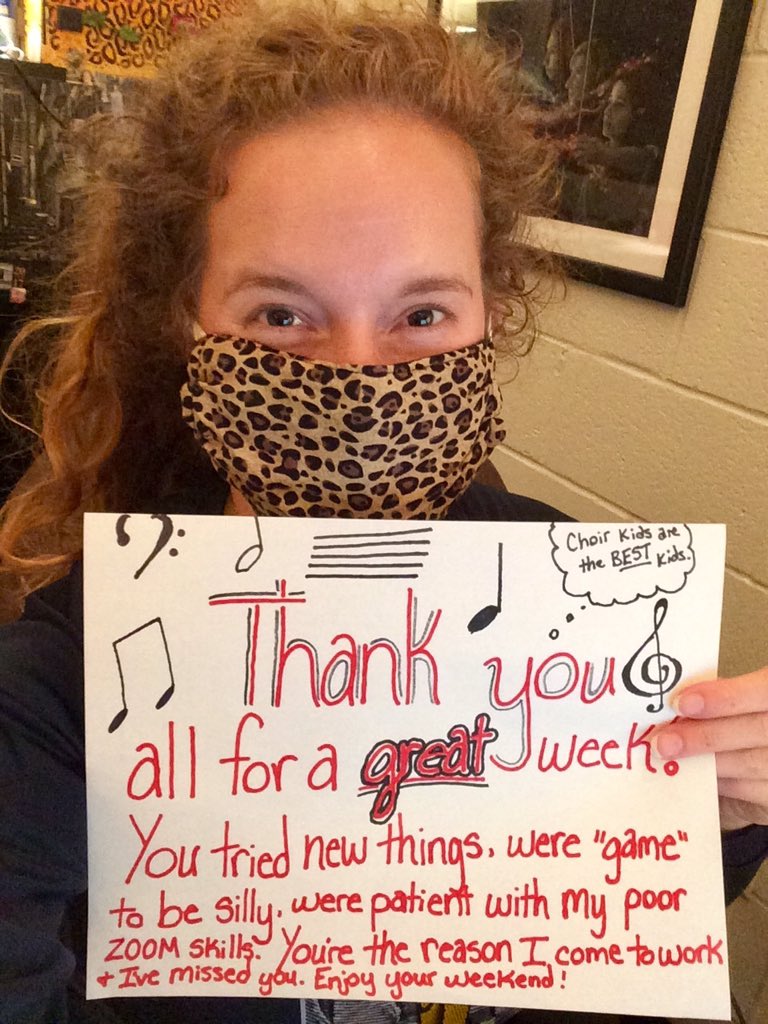 Choir Kids are
the BEST Kids.
Thank you
all for a great week!
You tried new things, were "game"
to be silly, were patient with my poor
ZOOM skills. You're the reason I come to work
+ I've missed you. Enjoy your weekend!